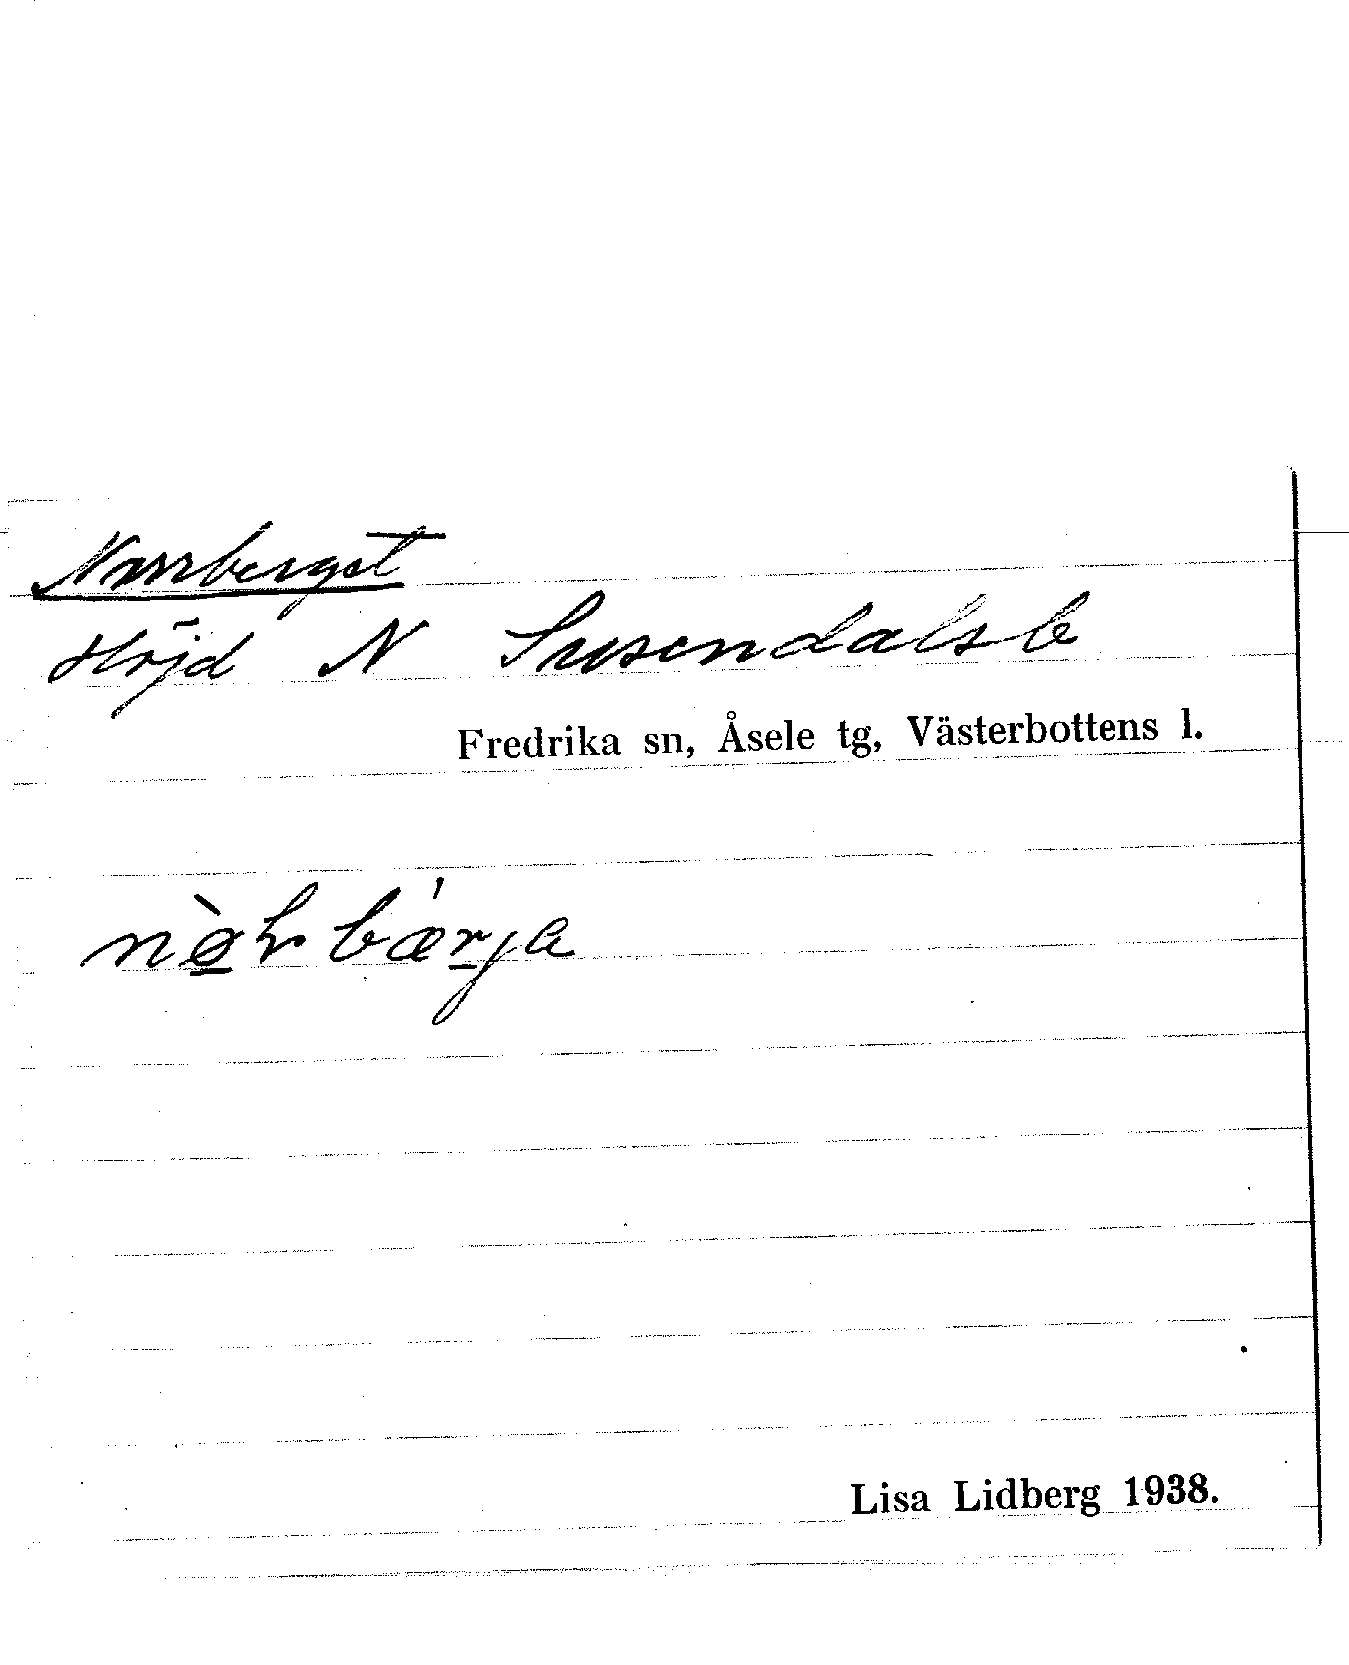 Norrberget
Höjd N Svsendalsb
Fredrika sn, Åsele tg, Västerbottens l.
Lisa Lidberg 1938.